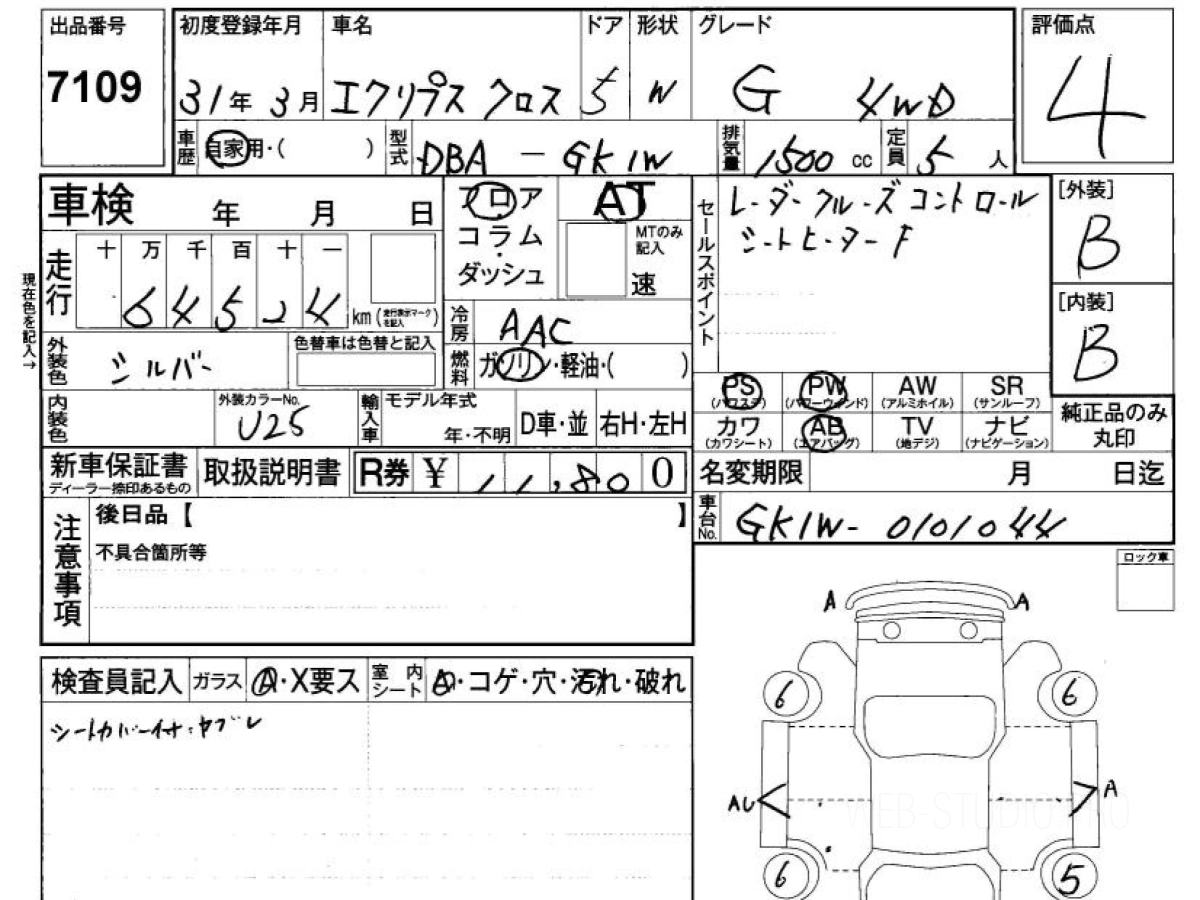 出品番号
7109
初度登録年月
31年3月
車名
エクリプス クロス
ドア
5
形状
W
グレード
G 4WD
評価点
4
車歴
自家用・( )
型式
DBA - GK1W
排気量
1500 cc
定員
5 人
車検 年 月 日
フロア
コラム
ダッシュ
AT
MTのみ
記入
速
セールスポイント
レーダークルーズコントロール
シートヒーターF
[外装]
B
[内装]
B
現在色を記入→
走行
十 万 千 百 十 一
6 4 5 2 4
km(走行表示マークを記入)
冷房
AAC
燃料
ガソリン・軽油・( )
外装色
シルバー
色替車は色替と記入
内装色
外装カラーNo.
U25
輸入車
モデル年式
年・不明
D車・並
右H・左H
PS
(パワステ)
PW
(パワーウィンド)
AW
(アルミホイル)
SR
(サンルーフ)
カワ
(カワシート)
AB
(エアバッグ)
TV
(地デジ)
ナビ
(ナビゲーション)
純正品のみ
丸印
新車保証書
ディーラー捺印あるもの
取扱説明書
R券 ¥ 11,800
名変期限 月 日迄
車台No.
GK1W- 0101044
注意事項
後日品【 】
不具合箇所等
ロック車
検査員記入
ガラス
A・X要ス
室内シート
A・コゲ・穴・汚れ・破れ
シートカバー付:ヤブレ
A A
6 6
AU A
6 5
WEB-STUDIO.PRO